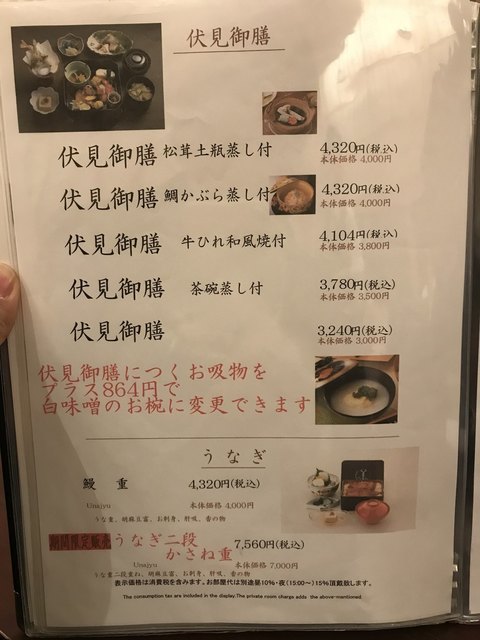 伏見御膳
伏見御膳 松茸土瓶蒸し付 4,320円(税込)
本体価格 4,000円
伏見御膳 鯛かぶら蒸し付 4,320円(税込)
本体価格 4,000円
伏見御膳 牛ひれ和風焼付 4,104円(税込)
本体価格 3,800円
伏見御膳 茶碗蒸し付 3,780円(税込)
本体価格 3,500円
伏見御膳 3,240円(税込)
本体価格 3,000円
伏見御膳につくお吸物を
プラス864円で
白味噌のお椀に変更できます
うなぎ
鰻 重 4,320円(税込)
Unajyu 本体価格 4,000円
うな重、胡麻豆富、お刺身、肝吸、香の物
期間限定販売 うなぎ二段
かさね重 7,560円(税込)
Unajyu 本体価格 7,000円
うな重二段重ね、胡麻豆富、お刺身、肝吸、香の物
表示価格は消費税を含みます。お部屋代は別途昼10%・夜(15:00~)15%頂戴致します。
The consumption tax are included in the display.The private room charge adds the above-mentioned.